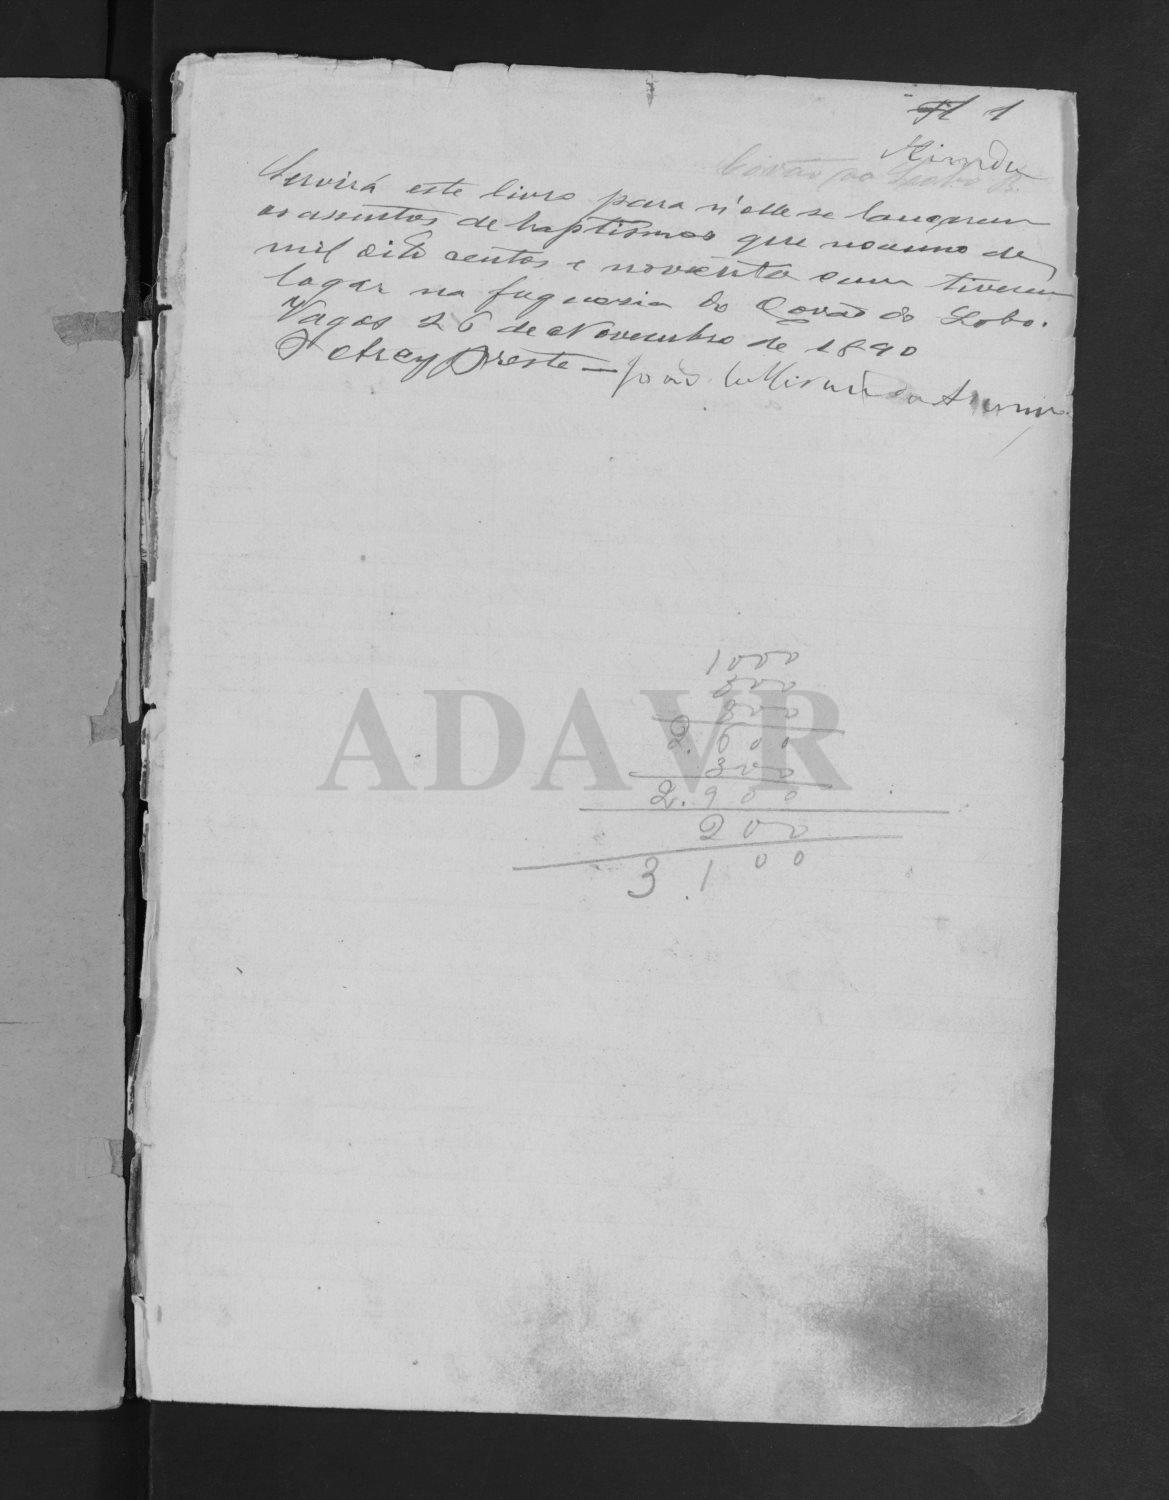 1
Miranda
Covão do Lobo B.
Servirá este livro para n'elle se lançarem
os assentos de baptismos que no anno de
mil oito centos e noventa e um tiverem
logar na freguesia do Covão do Lobo.
Vagos 26 de Novembro de 1890
O Arcypreste — João de Miranda
1000
800
800
2.600
300
2.900
200
3.100
ADAVR